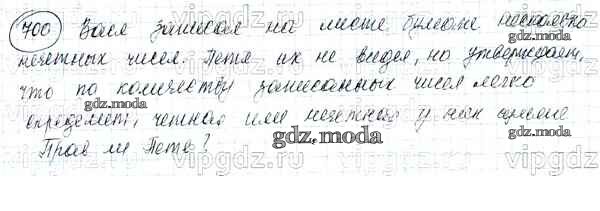 700 Вася записал на листе бумаги несколько
нечетных чисел. Петя их не видел, но утверждает,
что по количеству записанных чисел легко
определит, четная или нечетная у них сумма
Прав ли Петя?
gdz.moda
gdz.moda
gdz.moda
gdz.moda
vipgdz.ru
vipgdz.ru
vipgdz.ru